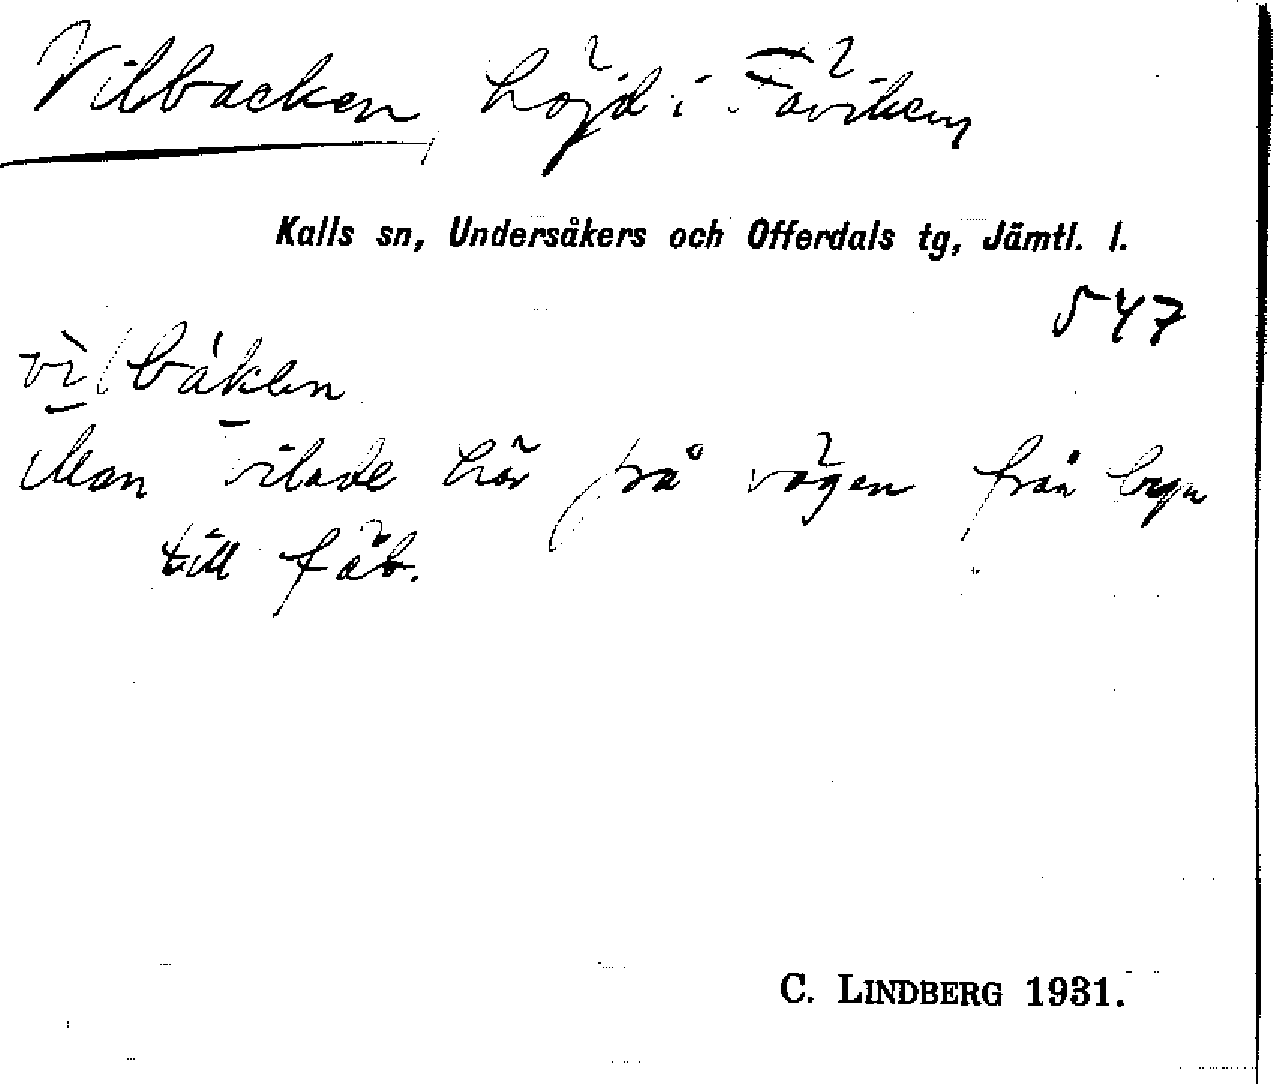 Vilbacken, höjd i Fäviken,
Kalls sn, Undersåkers och Offerdals tg, Jämtl. l.
547
vìlbákkɛn
Man vilade här på vägen från byn
till fäb.
C. LINDBERG 1931.